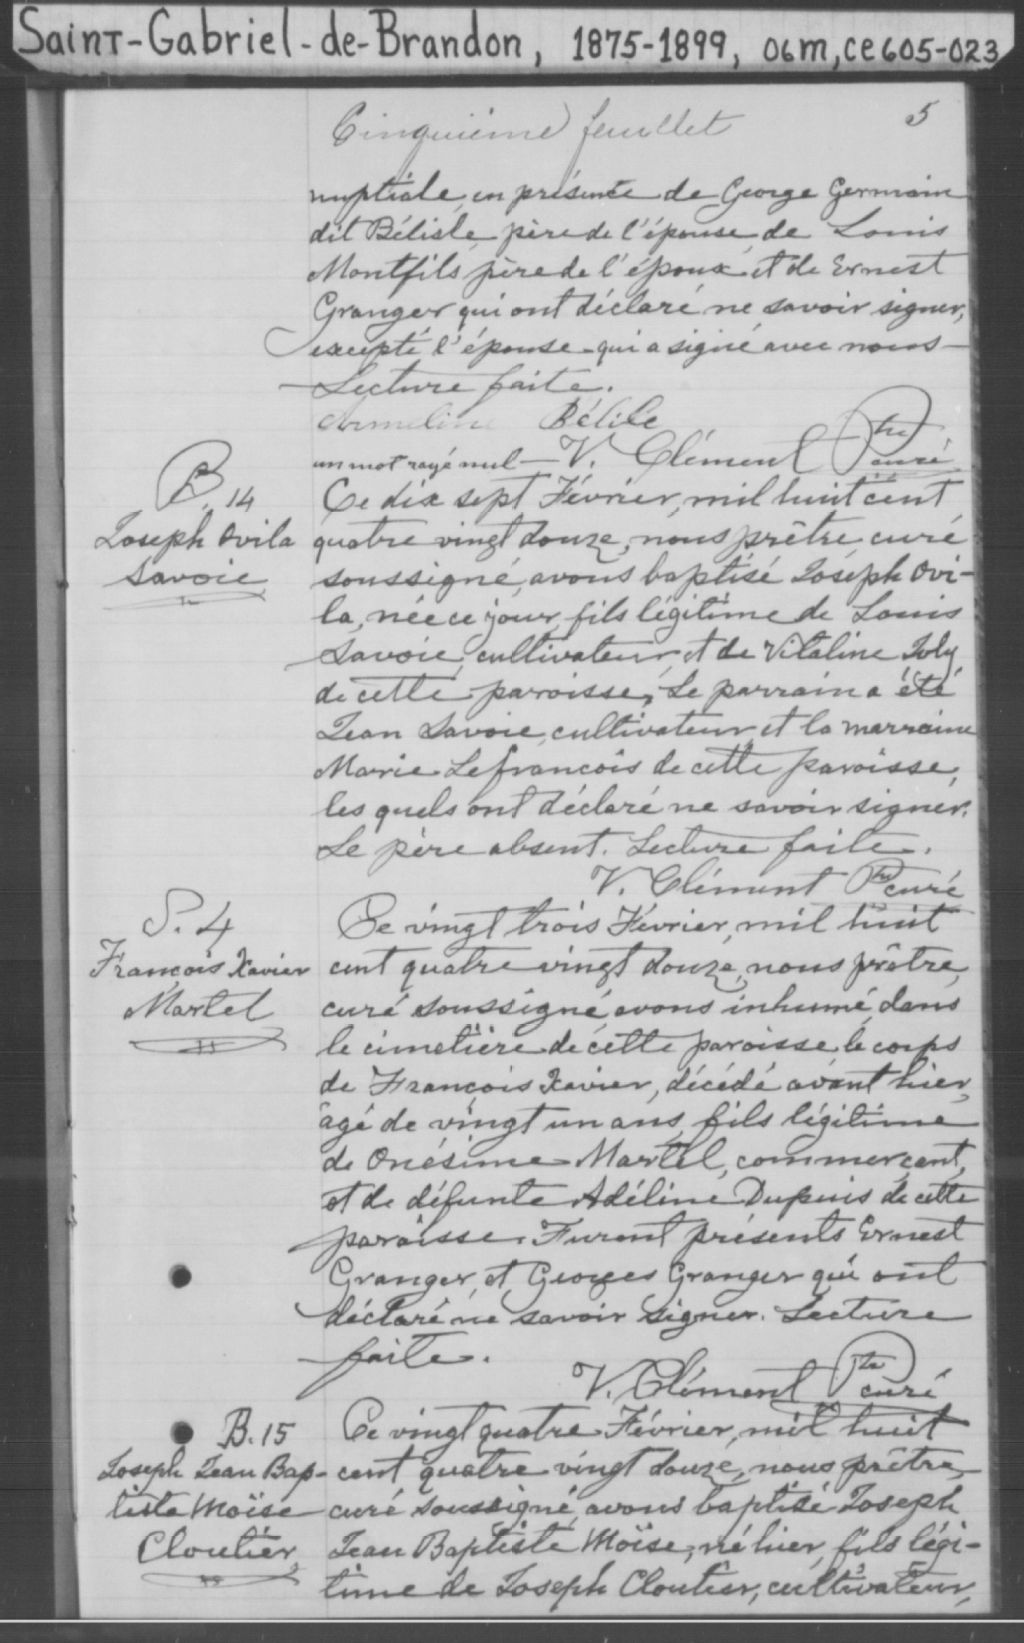 Saint-Gabriel-de-Brandon, 1875-1899, 06m, ce605-023
Cinquième feuillet 5
nuptiale, en présence de George Germain
dit Bélisle, père de l'épouse, de Louis
Montfils, père de l'époux et de Ernest
Granger qui ont déclaré ne savoir signer,
excepté l'épouse qui a signé avec nous
Lecture faite.
Armeline Bélile
un mot rayé nul — V. Clément Ptre curé
B. 14
Joseph Ovila
Savoie
Ce dix sept Février, mil huit cent
quatre vingt douze, nous prêtre curé
soussigné, avons baptisé Joseph Ovi-
la, née ce jour, fils légitime de Louis
Savoie, cultivateur, et de Vitaline Joly
de cette paroisse, Le parrain a été
Jean Savoie, cultivateur, et la marraine
Marie Lefrancois de cette paroisse,
les quels ont déclaré ne savoir signer.
Le père absent. Lecture faite.
V. Clément Ptre curé
S. 4
François Xavier
Martel
Ce vingt trois Février, mil huit
cent quatre vingt douze, nous prêtre,
curé soussigné, avons inhumé, dans
le cimetière de cette paroisse le corps
de François Xavier, décédé avant hier,
âgé de vingt un ans, fils légitime
de Onésime Martel, commerçant,
et de défunte Adéline Dupuis de cette
paroisse. Furent présents Ernest
Granger, et Georges Granger qui ont
déclaré ne savoir signer. Lecture
faite.
V. Clément Ptre curé
B. 15
Joseph Jean Bap-
tiste Moïse
Cloutier
Ce vingt quatre Février, mil huit
cent quatre vingt douze, nous prêtre,
curé soussigné, avons baptisé Joseph
Jean Baptiste Moïse, né hier, fils légi-
time de Joseph Cloutier, cultivateur,